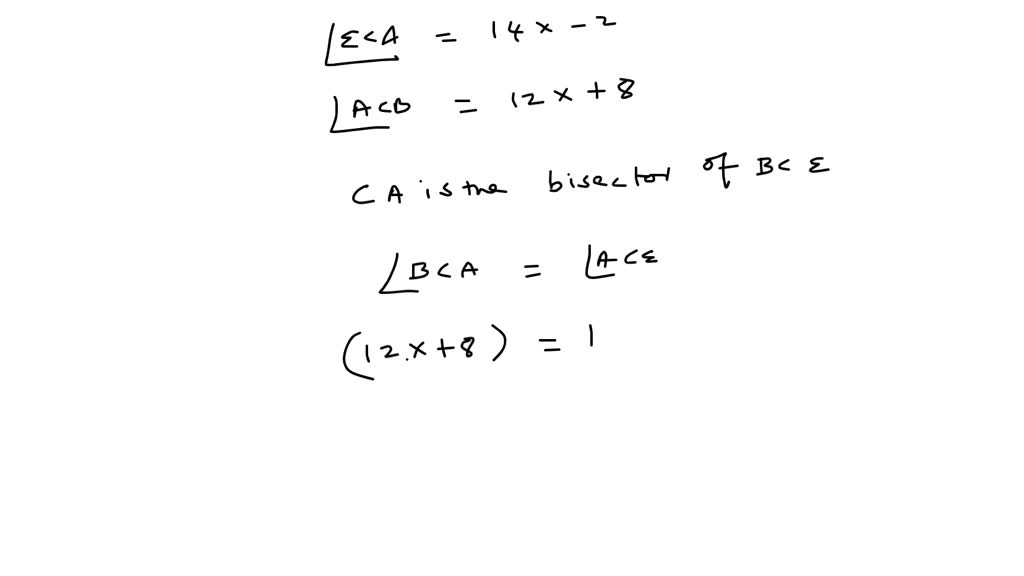 ∠ECA = 14x - 2
∠ACB = 12x + 8
CA is the bisector of BCE
∠BCA = ∠ACE
(12x+8) = 1